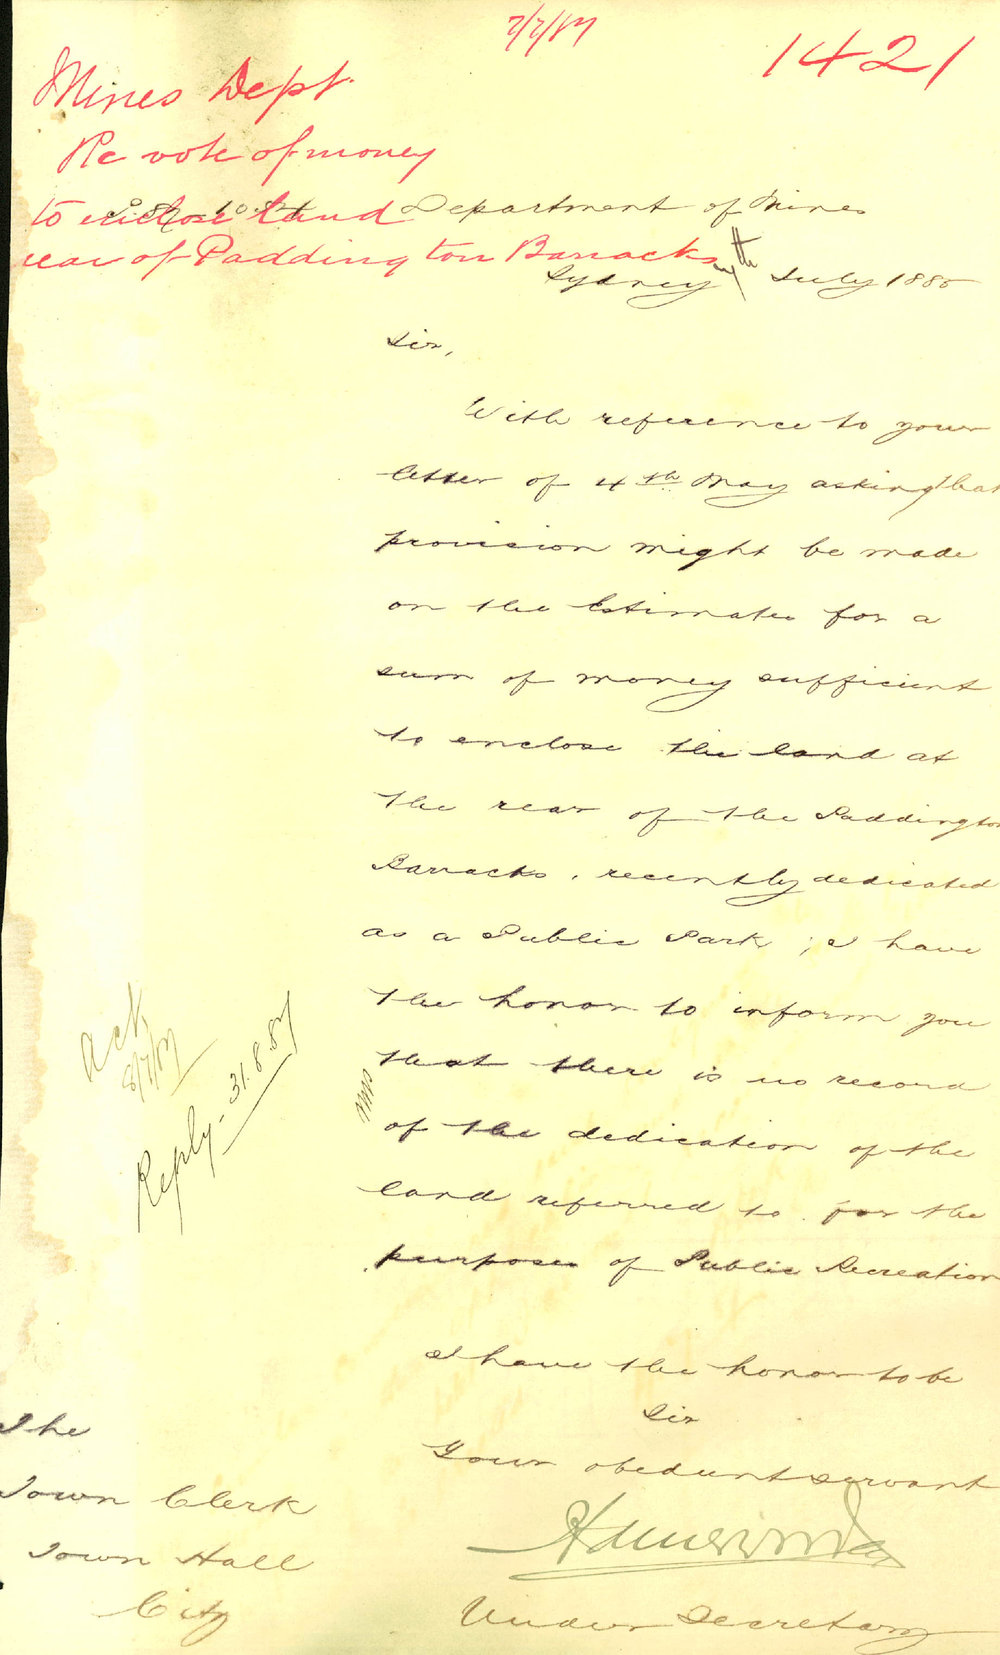 7/7/87
1421
Mines Dept.
Re vote of money
to enclose land
rear of Paddington Barracks
Department of Mines
Sydney 7th July 188
Sir,
With reference to your
letter of 4th May asking that
provision might be made
on the Estimates for a
sum of money sufficient
to enclose the land at
the rear of the Paddington
Barracks, recently dedicated
as a Public Park; I have
the honor to inform you
that there is no record
of the dedication of the
land referred to for the
purposes of Public Recreation
Ack
8/7/87
Reply - 31.8.87
I have the honor to be
Sir
Your obedient servant
Under Secretary
The
Town Clerk
Town Hall
City